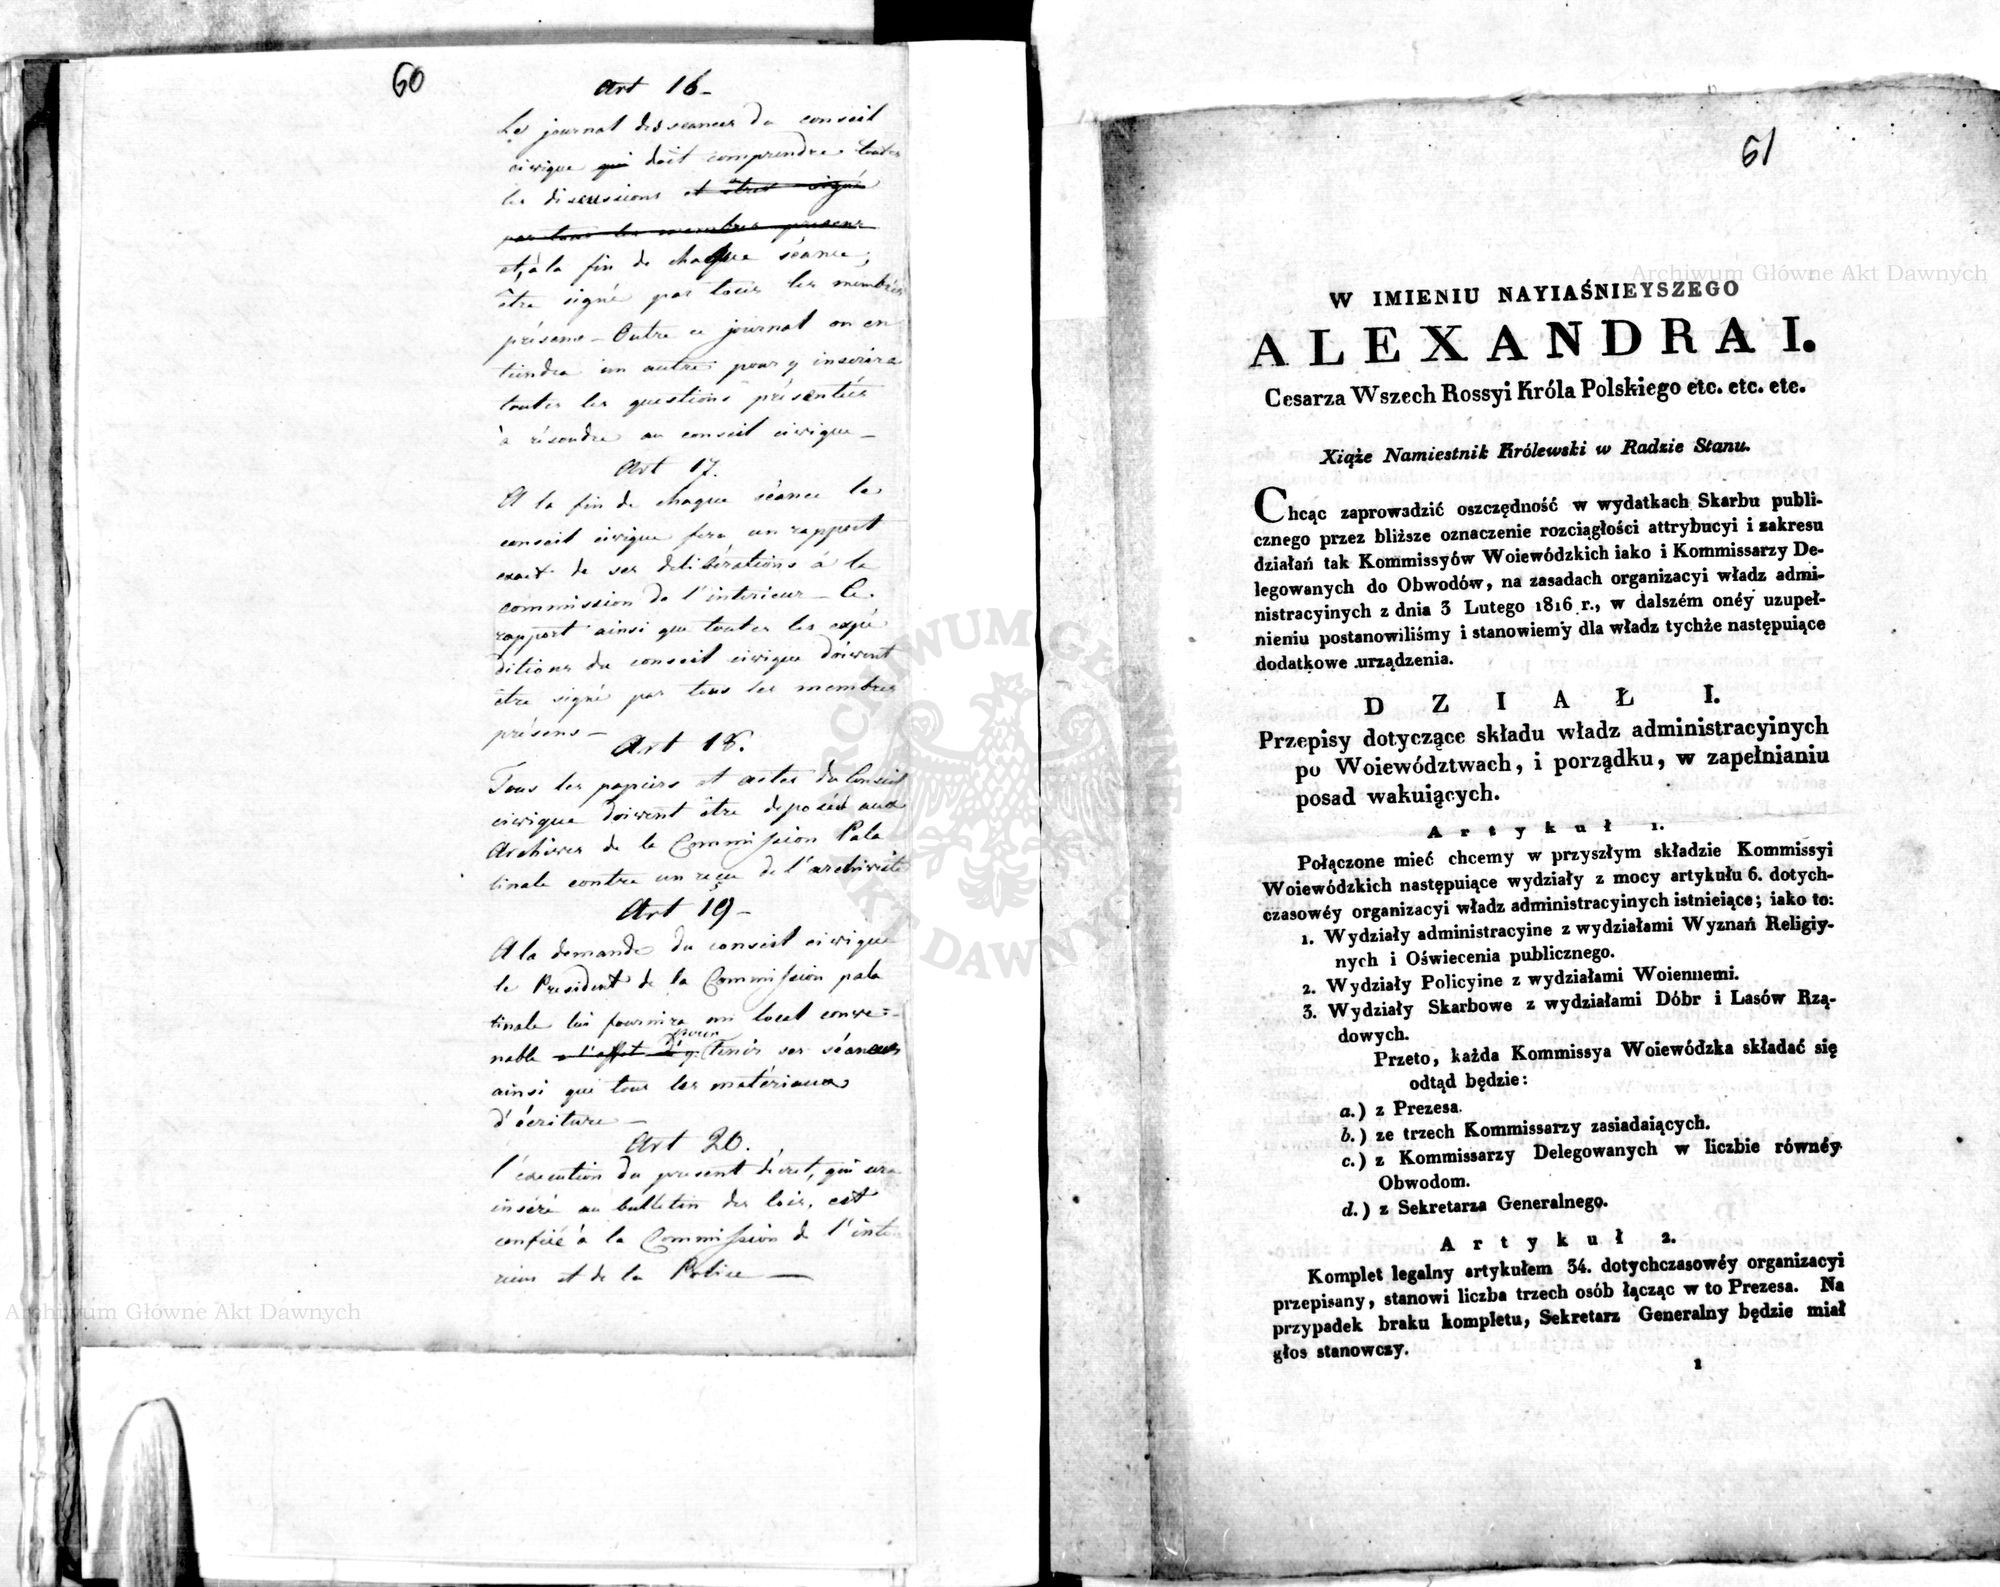 60
Art 16-
Le journal des seances du conseil
civique qui doit comprendre toutes
les discussions et être signé
par tous les membres présens
et, à la fin de chaque séance,
être signé par tous les membres
présens - Outre ce journal on en
tiendra un autre pour y inserira
toutes les questions présentées
à résoudre au conseil civique -
Art 17.
A la fin de chaque séance le
conseil civique fera un rapport
exact de ses délibérations à la
commission de l'interieur - Ce
rapport ainsi que toutes les expé
ditions du conseil civique doivent
être signé par tous les membres
présens -
Art 18.
Tous les papiers et actes du Conseil
civique doivent être deposés aux
Archives de la Commission Pala
tinale contre un reçu de l'archiviste
Art 19-
A la demande du conseil civique
le President de la Commission pala
tinale lui fournira un local conve=
nable a l'effet d'y pour Tenir ses séances
ainsi que tous les matériaux
d'écriture -
Art 20.
l'execution du present décret, qui sera
inséré au bulletin des lois, est
confiée à la Commission de l'inte
rieur et de la Police -
61
W IMIENIU NAYIAŚNIEYSZEGO
ALEXANDRA I.
Cesarza Wszech Rossyi Króla Polskiego etc. etc. etc.
Xiąże Namiestnik Królewski w Radzie Stanu.
Chcąc zaprowadzić oszczędność w wydatkach Skarbu publi-
cznego przez bliższe oznaczenie rozciągłości attrybucyi i zakresu
działań tak Kommissyów Woiewódzkich iako i Kommissarzy De-
legowanych do Obwodów, na zasadach organizacyi władz admi-
nistracyinych z dnia 3 Lutego 1816 r., w dalszém onéy uzupeł-
nieniu postanowiliśmy i stanowiemy dla władz tychże następuiące
dodatkowe urządzenia.
DZIAŁ I.
Przepisy dotyczące składu władz administracyinych
po Woiewództwach, i porządku, w zapełnianiu
posad wakuiących.
Artykuł 1.
Połączone mieć chcemy w przyszłym składzie Kommissyi
Woiewódzkich następuiące wydziały z mocy artykułu 6. dotych-
czasowéy organizacyi władz administracyinych istnieiące; iako to:
1. Wydziały administracyine z wydziałami Wyznań Religiy-
nych i Oświecenia publicznego.
2. Wydziały Policyine z wydziałami Woiennemi.
3. Wydziały Skarbowe z wydziałami Dóbr i Lasów Rzą-
dowych.
Przeto, każda Kommissya Woiewódzka składać się
odtąd będzie:
a.) z Prezesa.
b.) ze trzech Kommissarzy zasiadaiących.
c.) z Kommissarzy Delegowanych w liczbie równéy
Obwodom.
d.) z Sekretarza Generalnego.
Artykuł 2.
Komplet legalny artykułem 34. dotychczasowéy organizacyi
przepisany, stanowi liczba trzech osób łącząc w to Prezesa. Na
przypadek braku kompletu, Sekretarz Generalny będzie miał
głos stanowczy.
1
Archiwum Główne Akt Dawnych
Archiwum Główne Akt Dawnych
ARCHIWUM GŁÓWNE AKT DAWNYCH